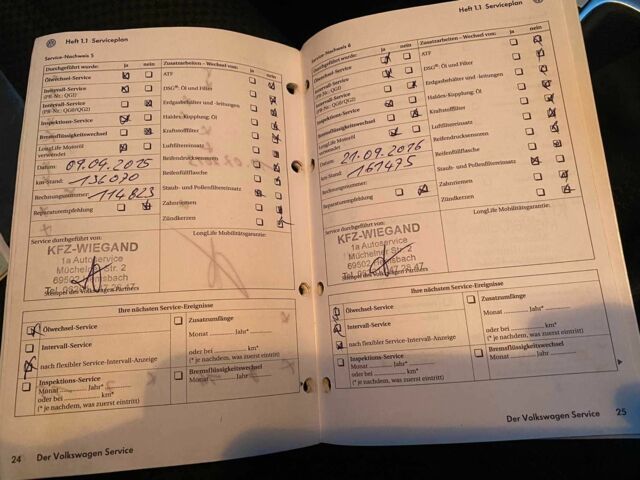 Heft 1.1 Serviceplan
Service-Nachweis 5
Durchgeführt wurde: ja nein
Ölwechsel-Service
Intervall-Service
(PR-Nr.: QG1)
Intervall-Service
(PR-Nr.: QG0/QG2)
Inspektions-Service
Bremsflüssigkeitswechsel
LongLife Motoröl
verwendet
Datum: 09.04.2015
km-Stand: 136070
Rechnungsnummer: 114823
Reparaturempfehlung
Zusatzarbeiten - Wechsel von: ja nein
ATF
DSG®: Öl und Filter
Erdgasbehälter und -leitungen
Haldex-Kupplung: Öl
Kraftstofffilter
Luftfiltereinsatz
Reifendrucksensoren
Reifenfüllflasche
Staub- und Pollenfiltereinsatz
Zahnriemen
Zündkerzen
Service durchgeführt von:
KFZ-WIEGAND
1a Autoservice
Müchelner Str. 2
Stempel des Volkswagen Partners
LongLife Mobilitätsgarantie:
Ihre nächsten Service-Ereignisse
Ölwechsel-Service
Intervall-Service
nach flexibler Service-Intervall-Anzeige
Inspektions-Service
Monat Jahr*
oder bei km*
(* je nachdem, was zuerst eintritt)
Zusatzumfänge
Monat Jahr*
oder bei km*
(* je nachdem, was zuerst eintritt)
Bremsflüssigkeitswechsel
Monat Jahr
24 Der Volkswagen Service
Heft 1.1 Serviceplan
Service-Nachweis 6
Durchgeführt wurde: ja nein
Ölwechsel-Service
Intervall-Service
(PR-Nr.: QG1)
Intervall-Service
(PR-Nr.: QG0/QG2)
Inspektions-Service
Bremsflüssigkeitswechsel
LongLife Motoröl
verwendet
Datum: 21.09.2016
km-Stand: 161475
Rechnungsnummer:
Reparaturempfehlung
Zusatzarbeiten - Wechsel von: ja nein
ATF
DSG®: Öl und Filter
Erdgasbehälter und -leitungen
Haldex-Kupplung: Öl
Kraftstofffilter
Luftfiltereinsatz
Reifendrucksensoren
Reifenfüllflasche
Staub- und Pollenfiltereinsatz
Zahnriemen
Zündkerzen
Service durchgeführt von:
KFZ-WIEGAND
1a Autoservice
Müchelner Str. 2
Stempel des Volkswagen Partners
LongLife Mobilitätsgarantie:
Ihre nächsten Service-Ereignisse
Ölwechsel-Service
Intervall-Service
nach flexibler Service-Intervall-Anzeige
Inspektions-Service
Monat Jahr*
oder bei km*
(* je nachdem, was zuerst eintritt)
Zusatzumfänge
Monat Jahr*
oder bei km*
(* je nachdem, was zuerst eintritt)
Bremsflüssigkeitswechsel
Monat Jahr
Der Volkswagen Service 25